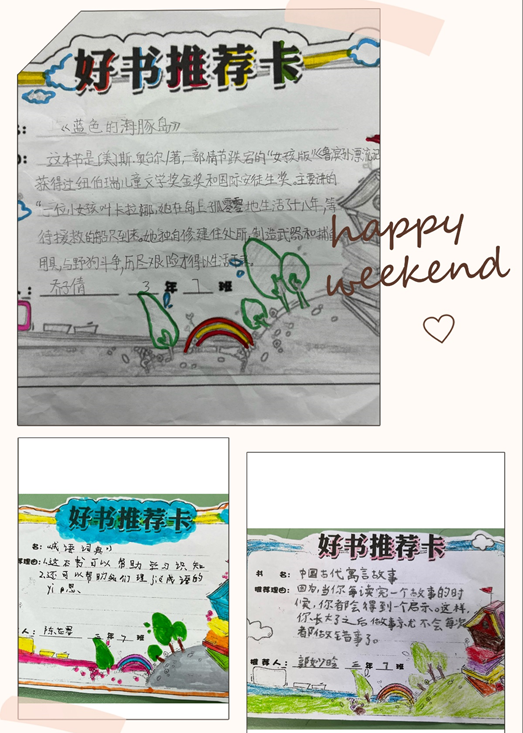 好书推荐卡
《蓝色的海豚岛》
这本书是(美)斯·奥台尔/著,一部情节跌宕的"女孩版"《鲁滨孙漂流
获得过纽伯瑞儿童文学奖金奖和国际安徒生奖。主要讲的
一位小女孩叫卡拉娜,她在岛上孤零零地生活了十八年,等
待援救的船只到来。她独自修建住处所,制造武器和捕
用具,与野狗斗争,历尽艰险才得以生活
乔子倩 3 年 7 班
happy
weekend
好书推荐卡
名:成语词典
荐理由:1.这本书可以帮助学习识知
2.还可以帮助我们理jiě成语的
yì思。
人: 三年7班
好书推荐卡
书 名:中国古代寓言故事
推荐理由:因为,当你每读完一个故事的时
候,你都会得到一个启示。这样,
你长大了之后做事就不会每次
都做错事了。
推荐人: 三年7班